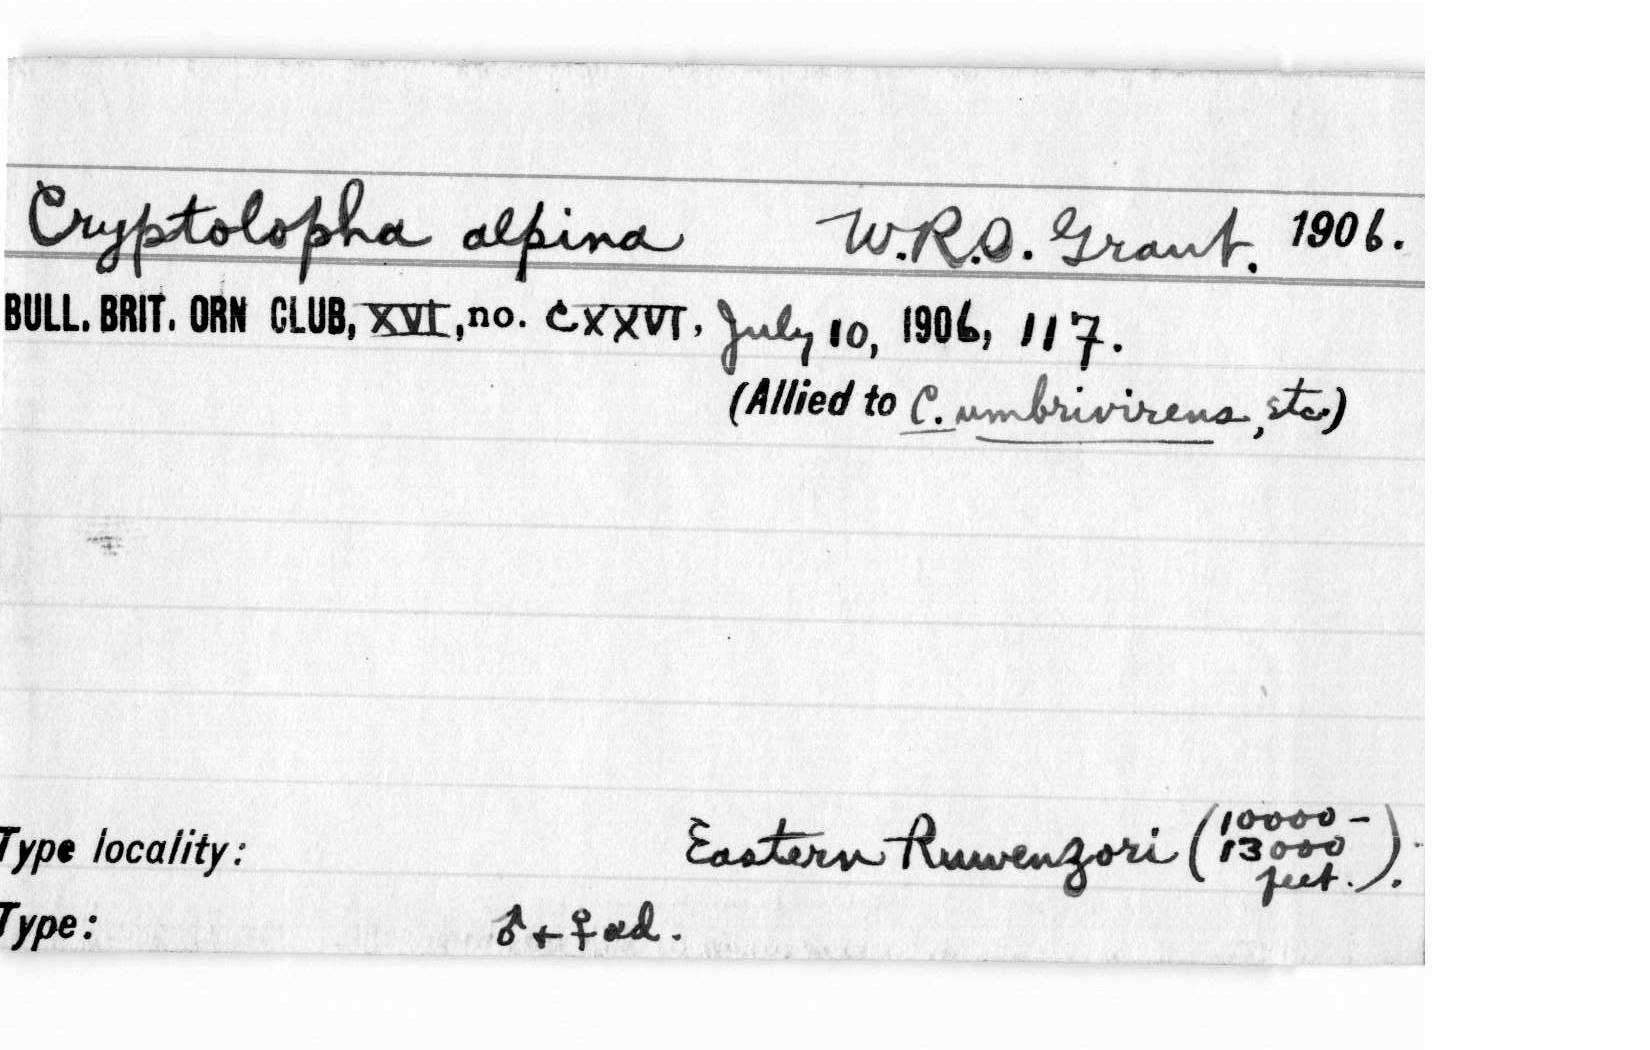 Cryptolopha alpina W.R.O. Grant. 1906.
BULL. BRIT. ORN CLUB, XVI, no. CXXVI, July 10, 1906, 117.
(Allied to C. umbrivirens, etc.)
Type locality: Eastern Ruwenzori (10000-13000 feet.).
Type: ♂ + ♀ ad.